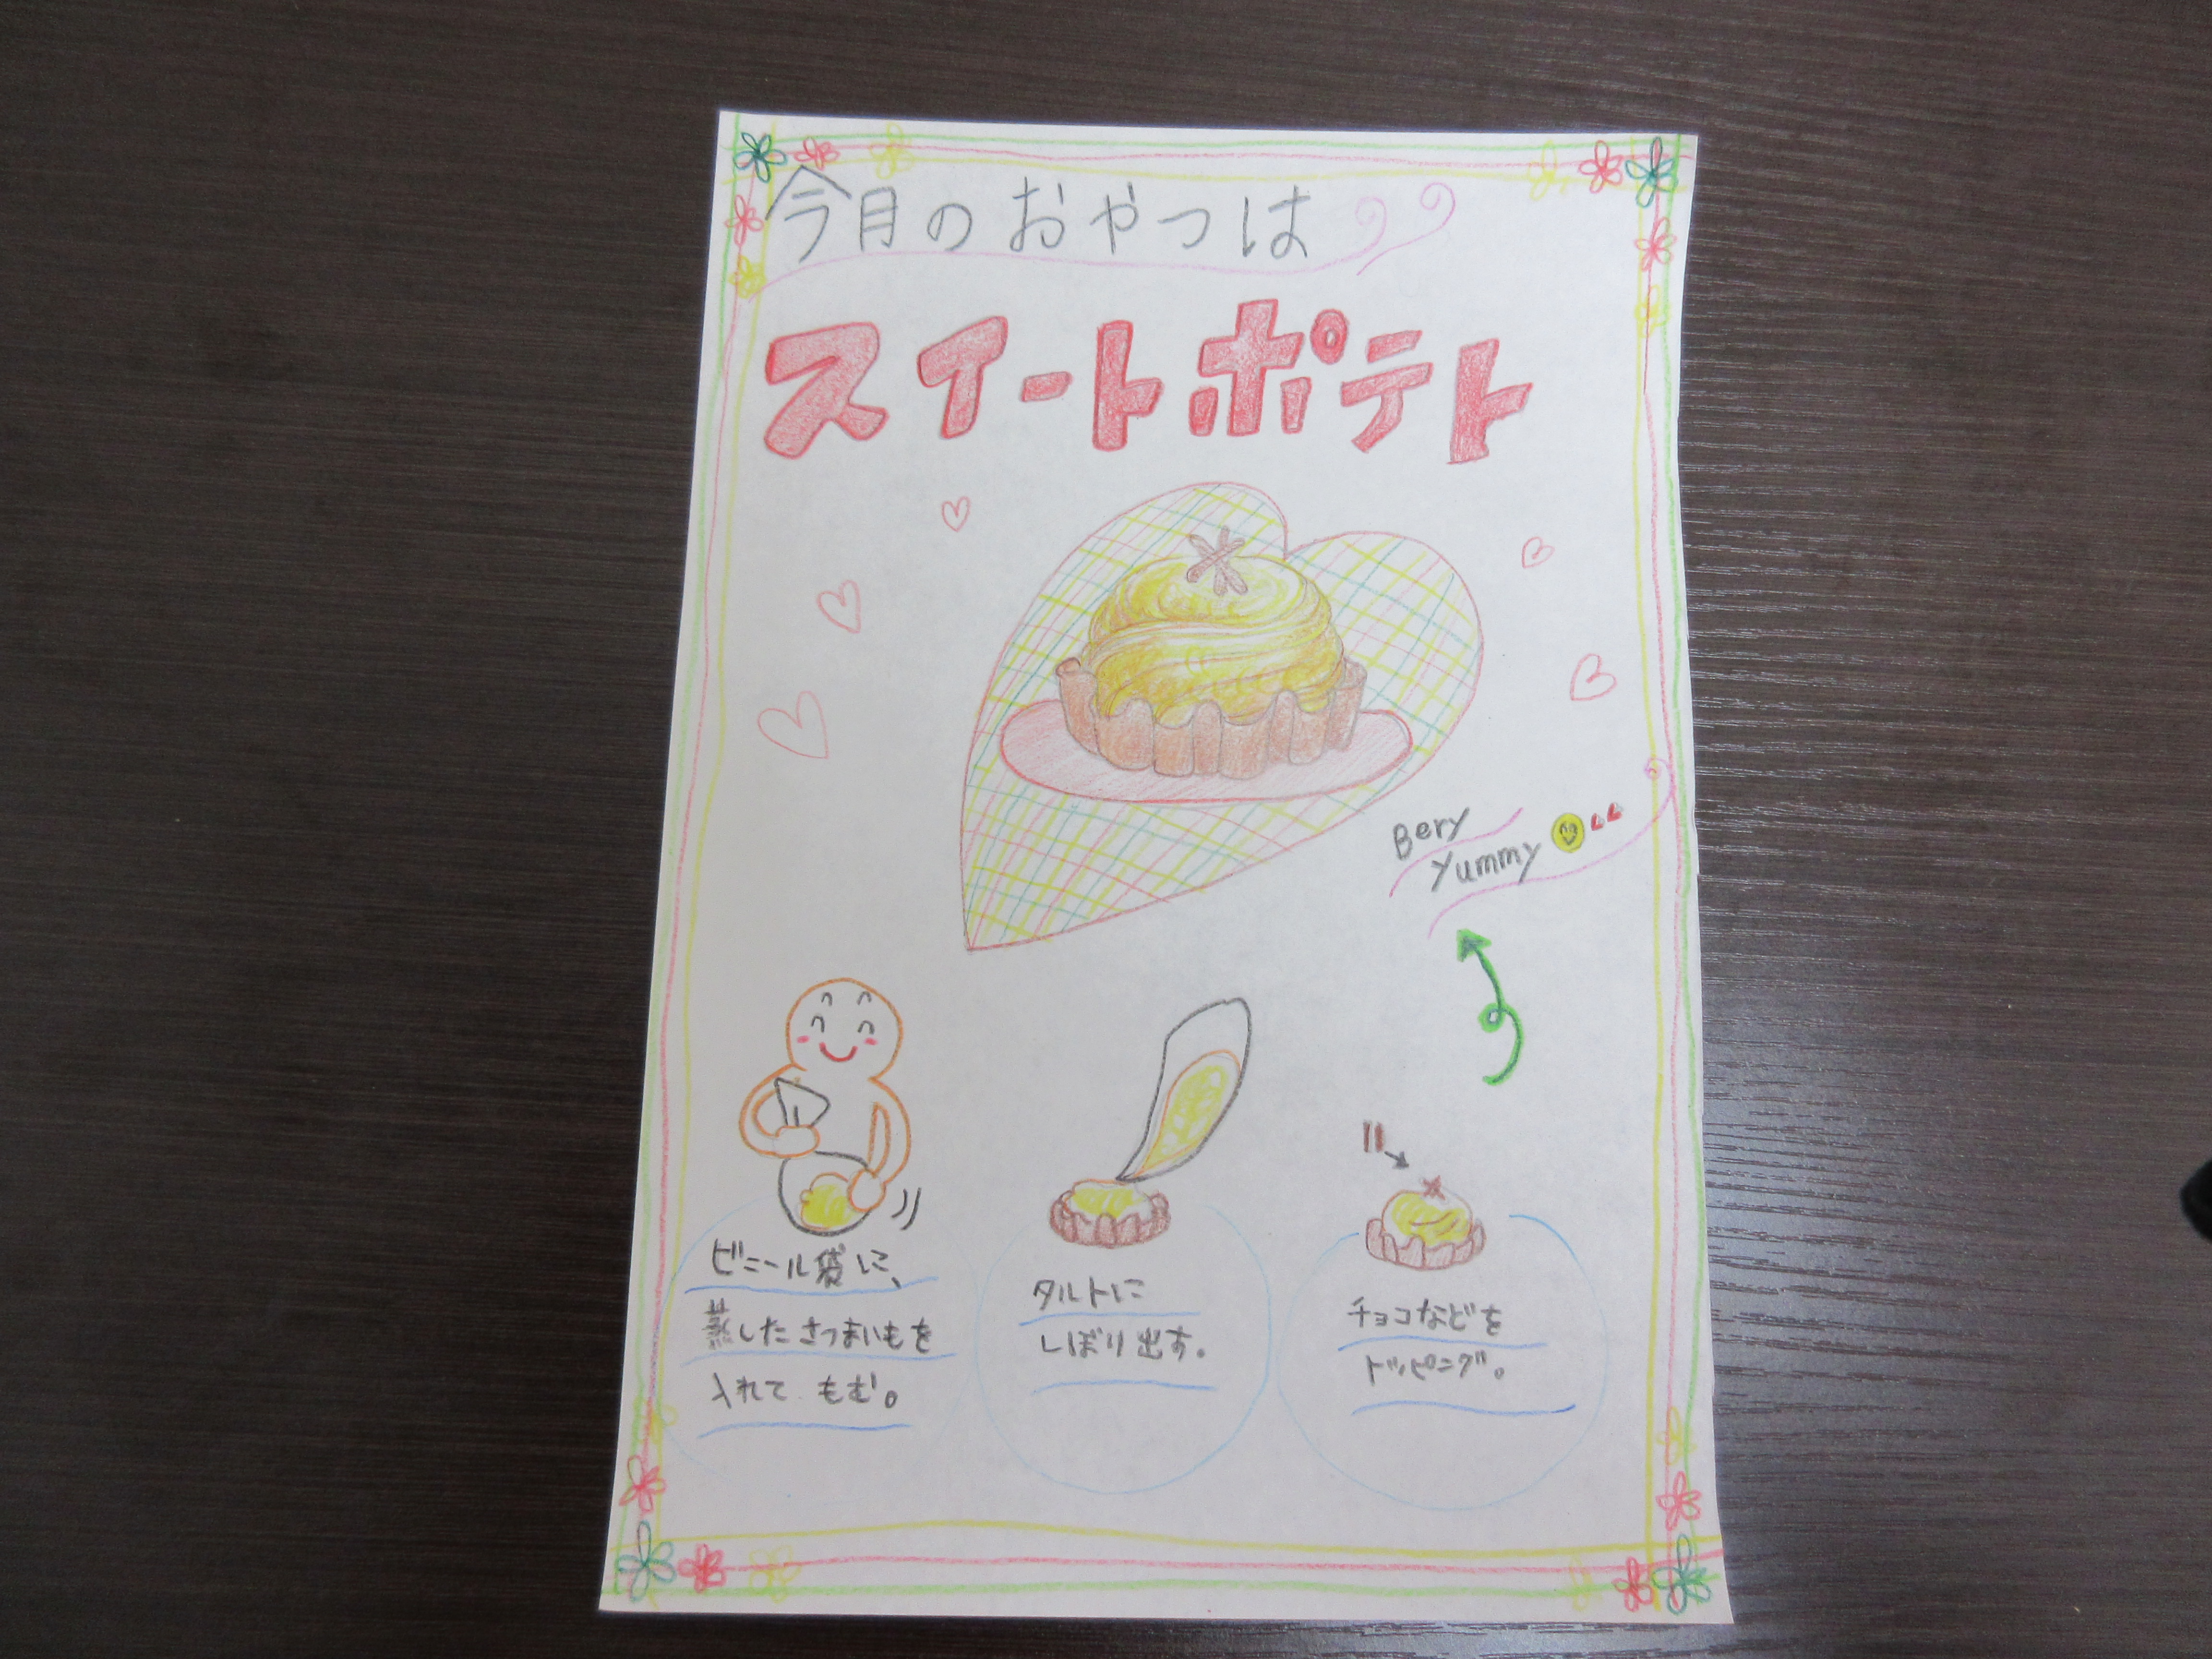 今月のおやつは
スイートポテト
Bery
Yummy
ビニール袋に、
蒸したさつまいもを
入れて もむ。
タルトに
しぼり出す。
チョコなどを
トッピング。